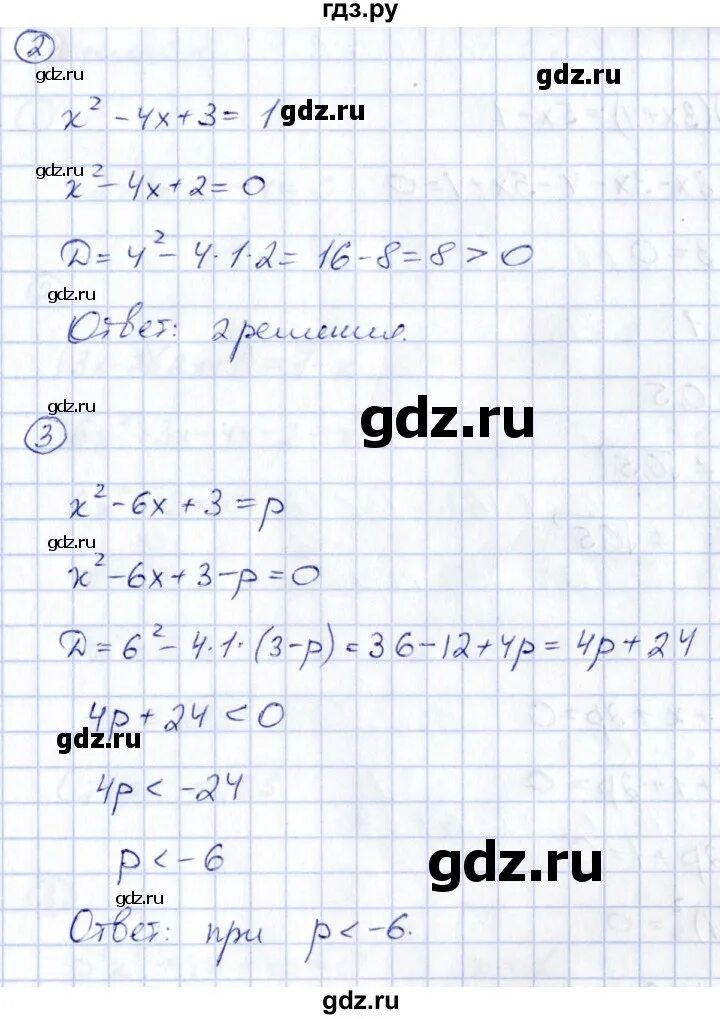 гдз.ру
2
gdz.ru gdz.ru
x² - 4x + 3 = 1 gdz.ru
gdz.ru
x² - 4x + 2 = 0
D = 4² - 4·1·2 = 16 - 8 = 8 > 0
gdz.ru
Ответ: 2 решения.
gdz.ru
gdz.ru
3
x² - 6x + 3 = p
gdz.ru
x² - 6x + 3 - p = 0
D = 6² - 4·1·(3-p) = 36 - 12 + 4p = 4p + 24
4p + 24 < 0
gdz.ru
4p < -24
p < -6
gdz.ru
gdz.ru
Ответ: при p < -6.
gdz.ru